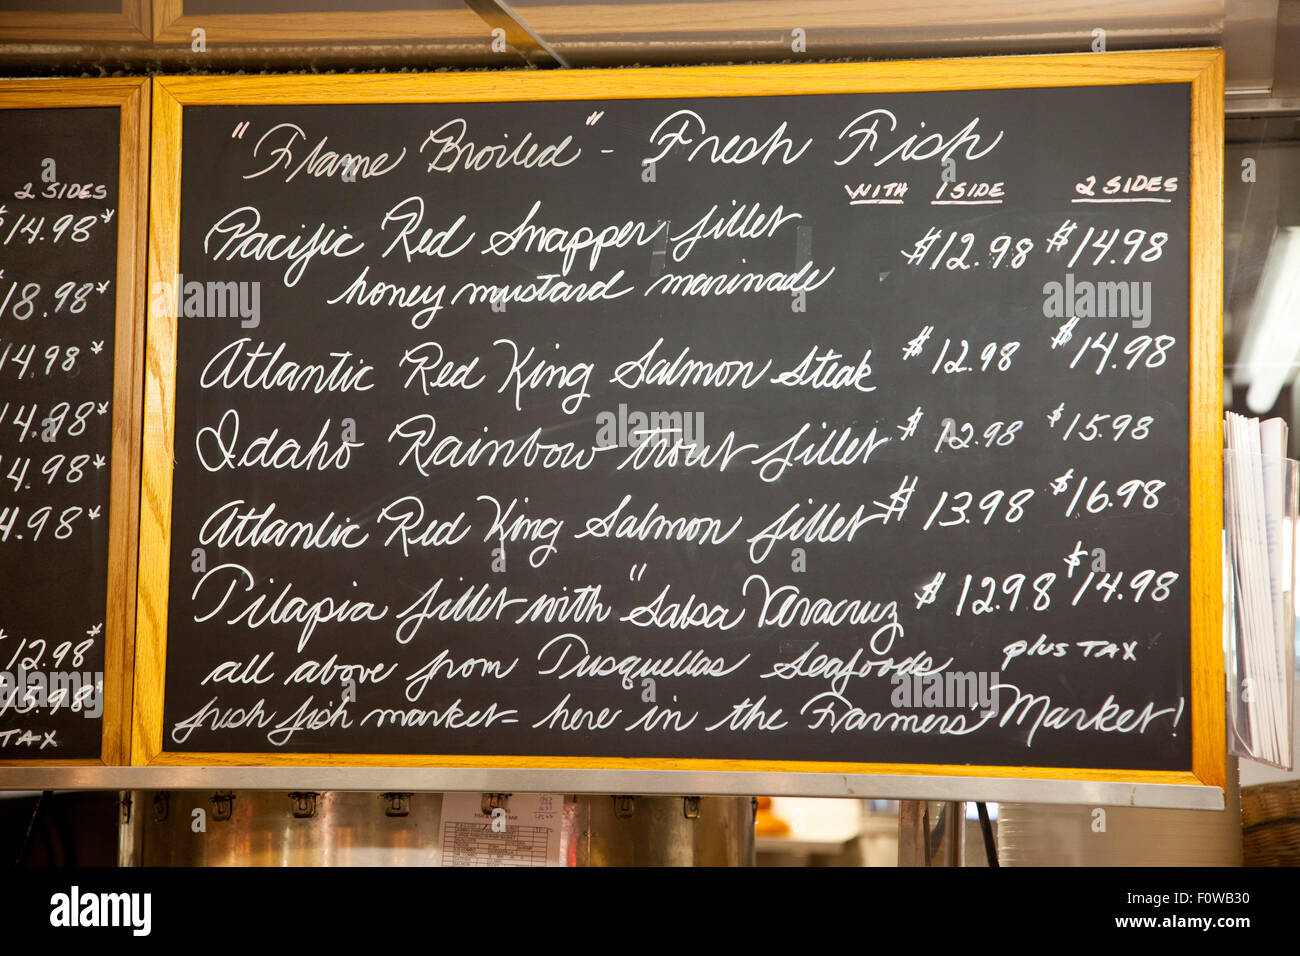 2 SIDES
$14.98*
18.98*
14.98*
14.98*
14.98*
4.98*
12.98*
15.98*
TAX
"Flame Broiled" - Fresh Fish
WITH 1 SIDE 2 SIDES
Pacific Red Snapper fillet $12.98 $14.98
honey mustard marinade
Atlantic Red King Salmon Steak $12.98 $14.98
Idaho Rainbow trout fillet $12.98 $15.98
Atlantic Red King Salmon fillet $13.98 $16.98
Tilapia fillet with "Salsa Veracruz $12.98 $14.98
all above from Dusquellas Seafoods plus TAX
fresh fish market = here in the Farmers' Market!
alamy
a
Image ID: F0WB30
www.alamy.com
alamy stock photo